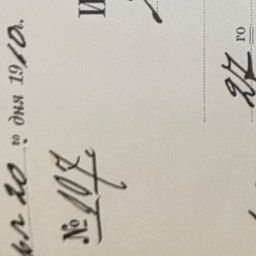 20 го дня 1910 г.
№ 107
И
27 го